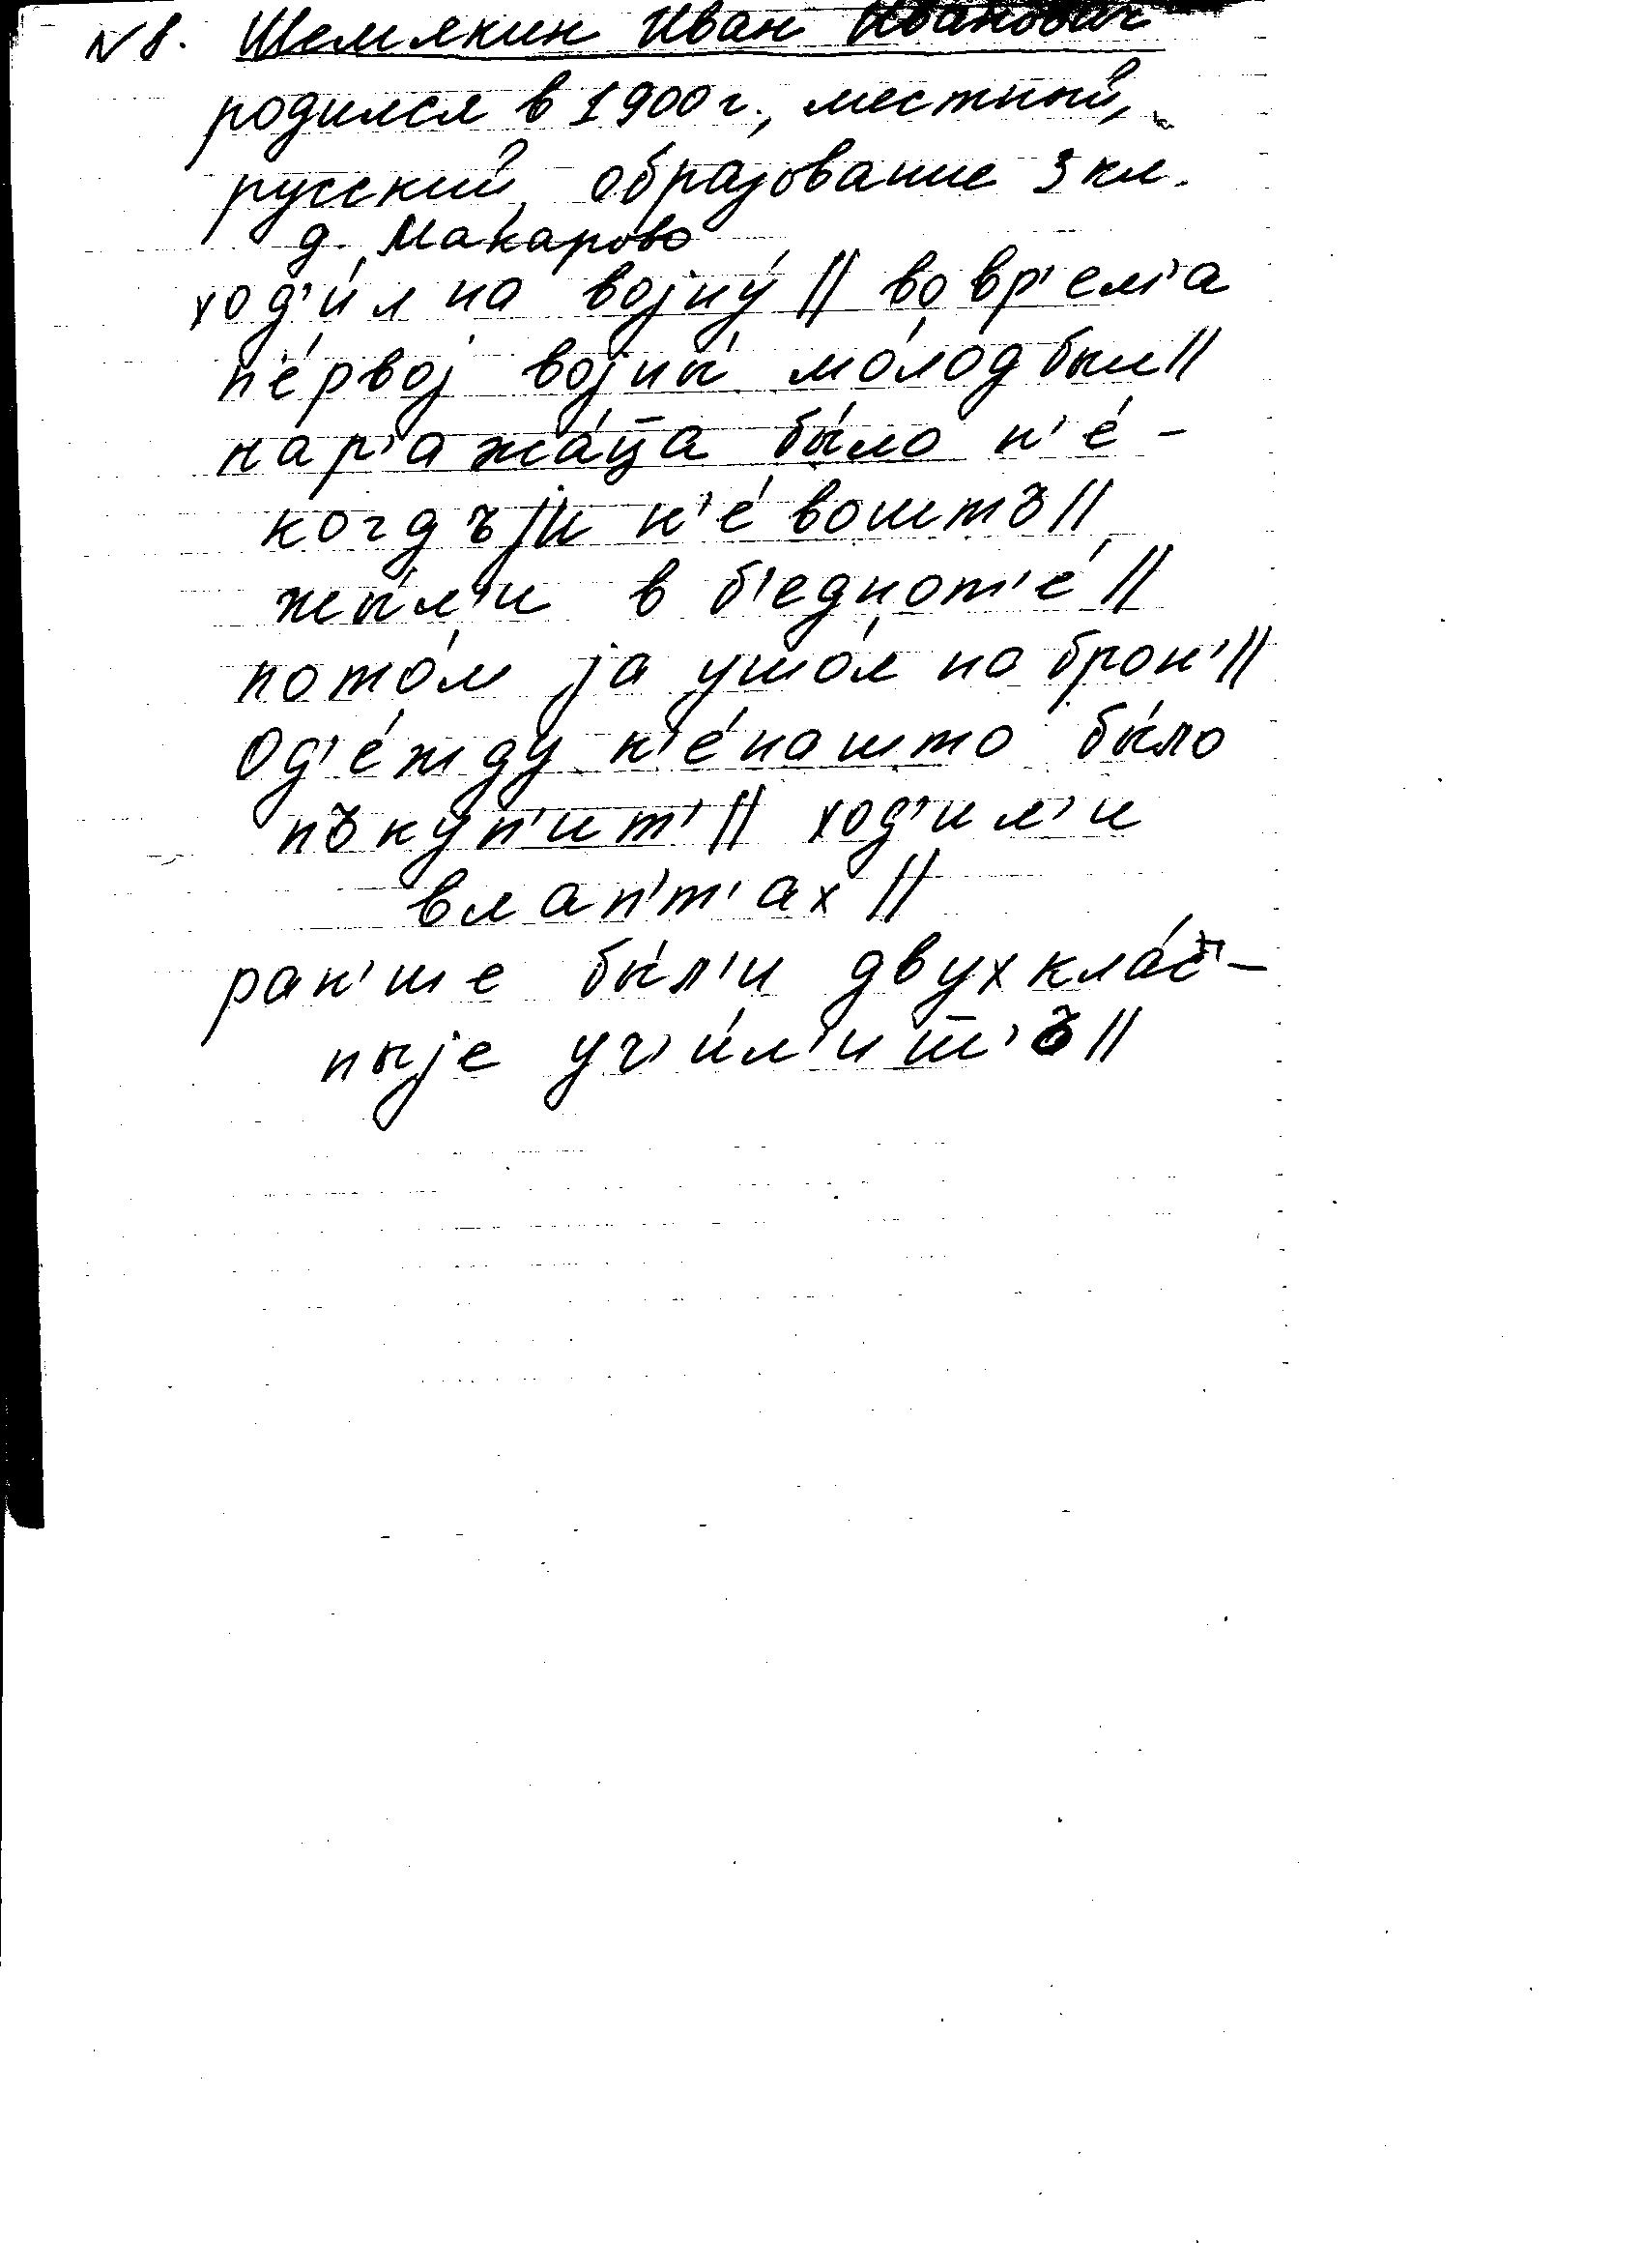 № 8. Шемякин Иван Иванович
родился в 1900 г., местный,
русский, образование 3 кл.
д. Макарово
ход'и́л на војну́ || во вр'ем'а
п'е́рвој војны́ мо́лод был ||
нар'ажа́ц̄а бы́ло н'е́ -
когдъ ји н'е́ воштъ ||
жы́л'и в б'еднот'е́ ||
пото́м ја ушо́л на брон' ||
Од'е́жду н'е́нашто бы́ло
пъкуп'ит' || ход'ил'и
влап'т'ах ||
ран'ше бы́л'и двухкла́с -
ныје уч'и́л'иш̄'ъ ||